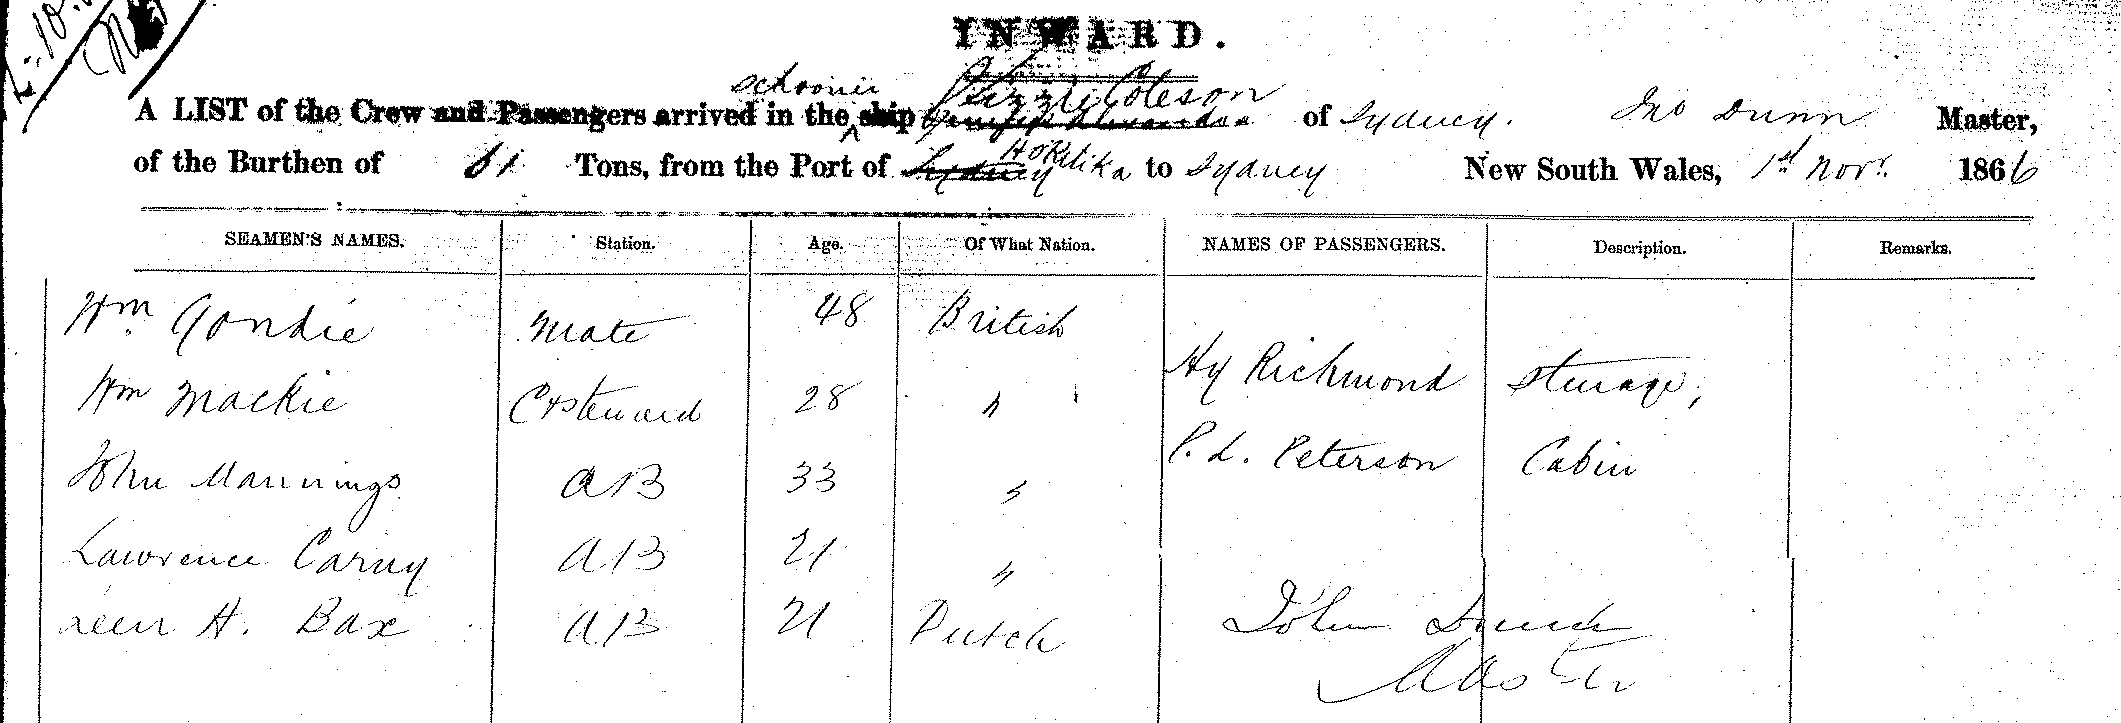 INWARD.
schooner Lizzie Coleson
A LIST of the Crew and Passengers arrived in the ship of Sydney. Jno Dunn Master,
Hokitika
of the Burthen of 61 Tons, from the Port of Sydney to Sydney New South Wales, 1st Novr. 1866
SEAMEN'S NAMES. Station. Age. Of What Nation. NAMES OF PASSENGERS. Description. Remarks.
Wm Gondie Mate 48 British
Hy Richmond Sturage,
Wm Mackie C & Steward 28 "
P. L. Peterson Cabin
John Mannings AB 33 "
Lawrence Carny AB 21 "
H. Bax AB 21 Dutch
John Dunn
Master